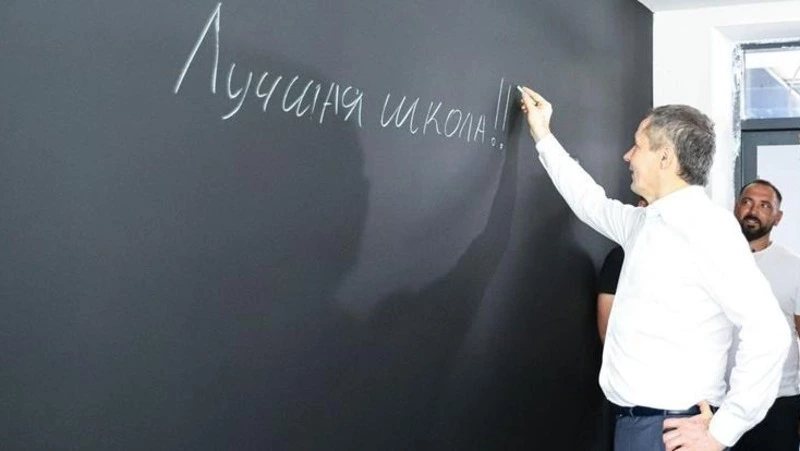 Лучшая школа!!